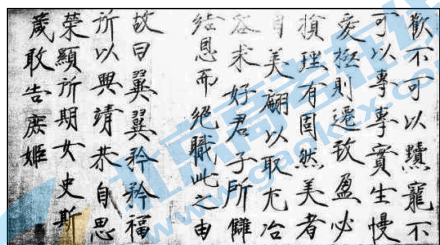 歡不可以黷寵不
可以專專實生慢
愛極則遷致盈必
損理有固然美者
自美翩以取尤冶
容求好君子所讎
結恩而絕職此之由
故曰翼翼矜矜福
所以興靖恭自思
榮顯所期女史斯
箴敢告庶姬
北京高考在线